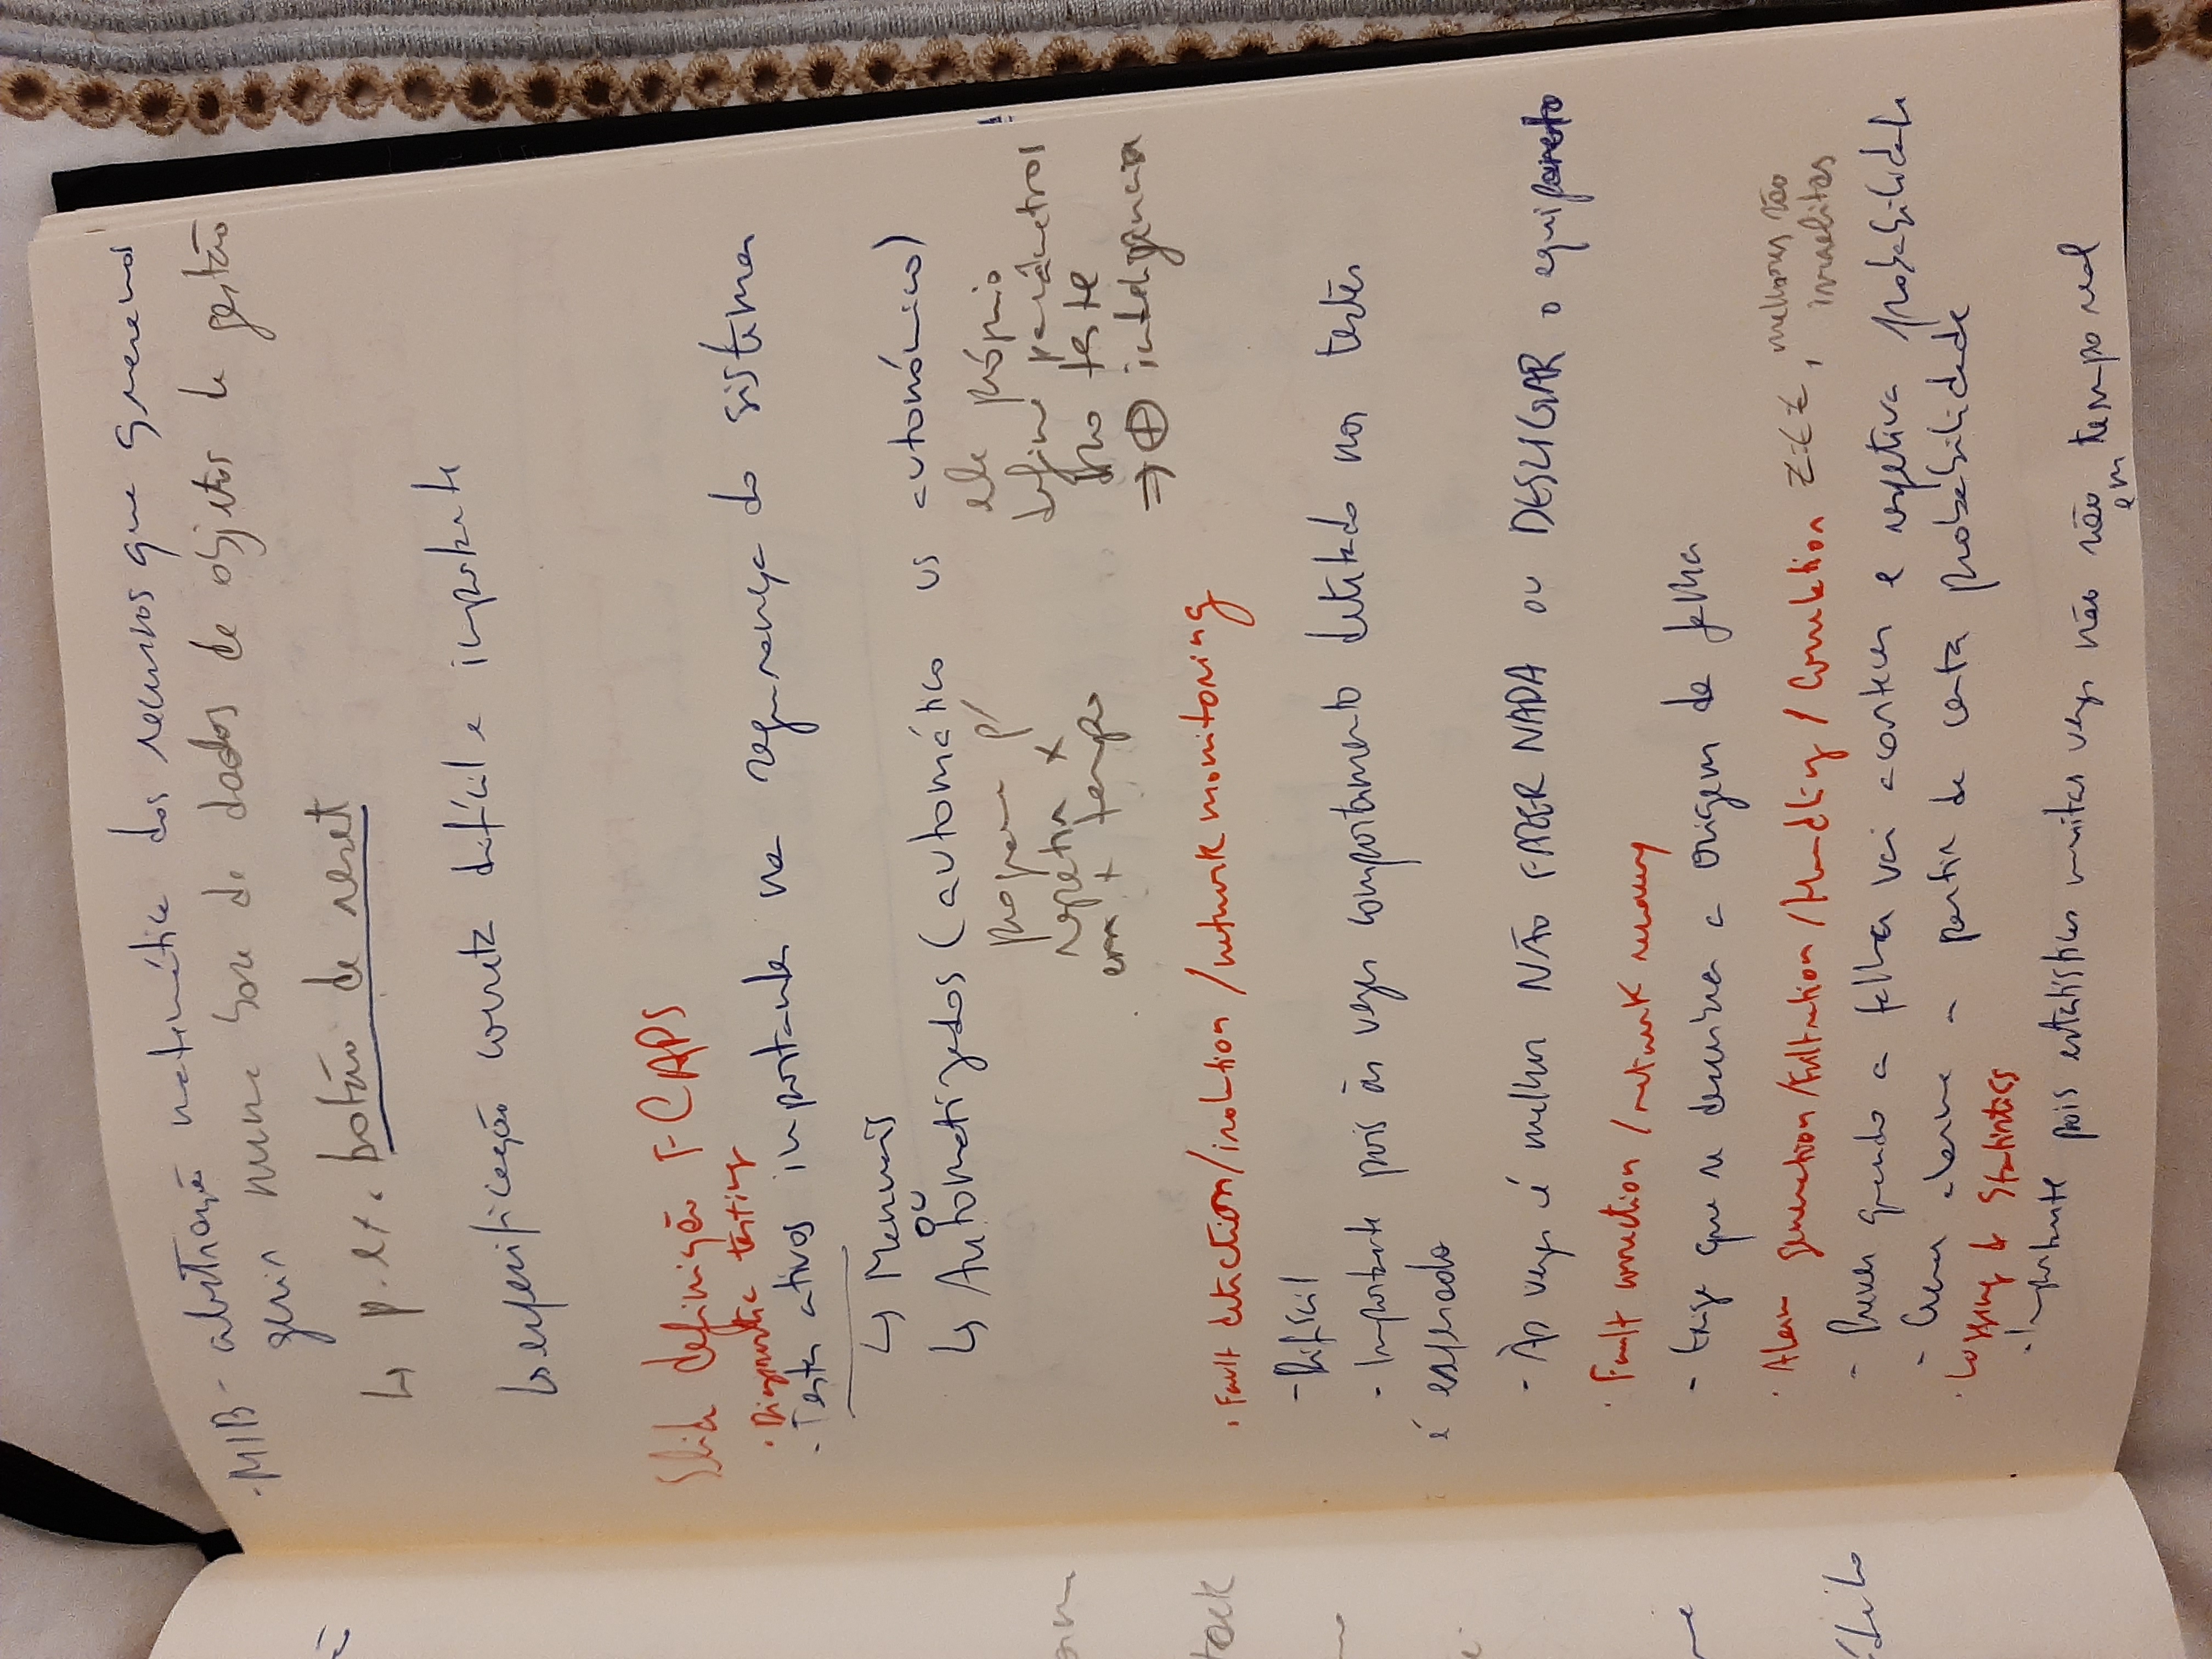 - MIB - abstração matemática dos recursos que queremos
gerir numa base de dados de objetos de gestão
↳ p. ex. botão de reset
↳ especificação correta difícil e importante
Slide definição FCAPS
· Diagnostic testing
- Testes ativos importantes na segurança do sistema
↳ Manuais
ou
↳ Automatizados (automático vs autonómico)
programa p/
repetir x
em x tempo
ele próprio
define parâmetros
do teste
⇒ ⊕ inteligência
· Fault detection/isolation/network monitoring
- Difícil
- Importante pois às vezes comportamento detetado nos testes
é esperado
- Às vezes é melhor NÃO FAZER NADA ou DESLIGAR o equipamento
· Fault correction/network recovery
- Exige que se descubra a origem da falha
· Alarm generation/Filtration/Handling/Correlation £££, melhores são
israelitas
- Prever quando a falha vai acontecer e respetiva probabilidade
- Gerar alarme a partir de certa probabilidade
· Logging & Statistics
- Importante pois estatísticas muitas vezes não são
em tempo real
tack